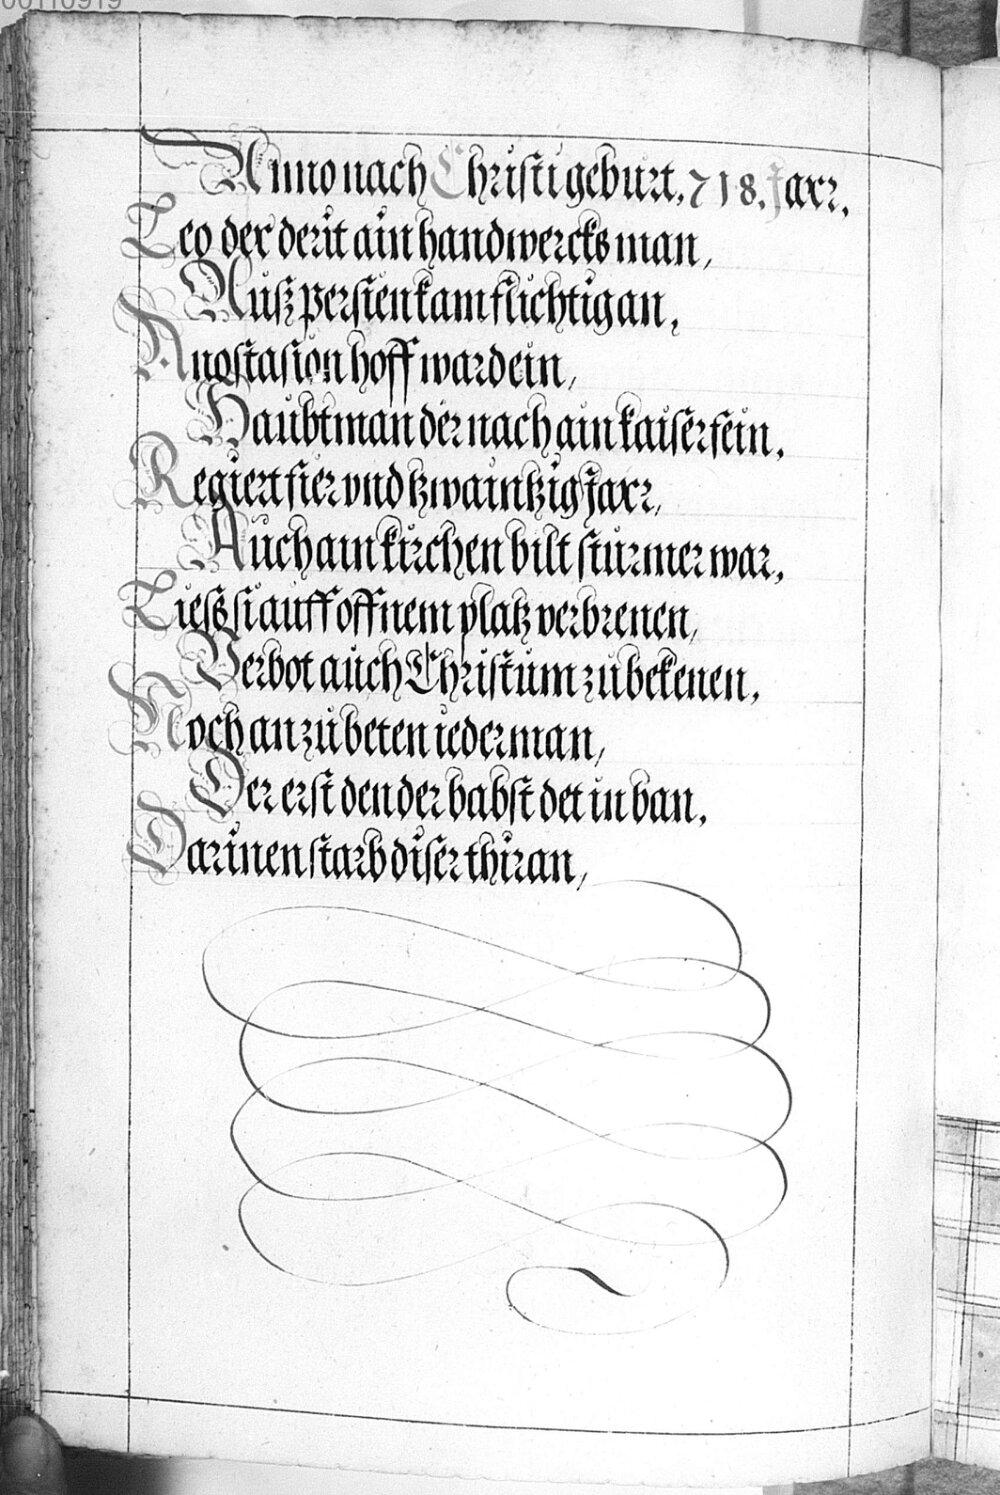 00110919
Anno nach Christi geburt. 718. Jarr.
Leo der derit ain handwercks man,
Auß persien kam flichtig an.
Anostasion hoff ward ein,
Haubtman der nach ain kaiser fein.
Regiert fier vnd tzwaintzig Jarr,
Auch ain kirchen bilt stürmer war.
Liess si auff offnem platz verbrenen,
Verbot auch Christum zu bekenen.
Noch an zu beten iederman,
Der erst den der babst det in ban.
Darinen starb diser thiran,